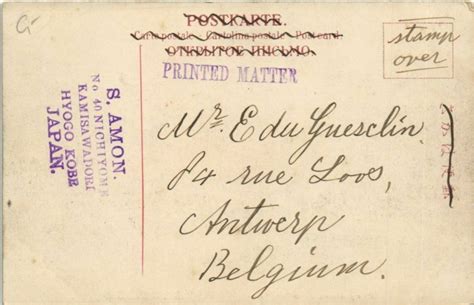 POSTKARTE.
Carte postale Cartolina postale Postcard
ОТКРЫТОЕ ПИСЬМО.
PRINTED MATTER
stamp
over
S. AMON.
No 40 NICHIYOME
KAMISAWADORI
HYOGO KOBE
JAPAN.
Mr. E du Guesclin.
84 rue Loos,
Antwerp
Belgium.